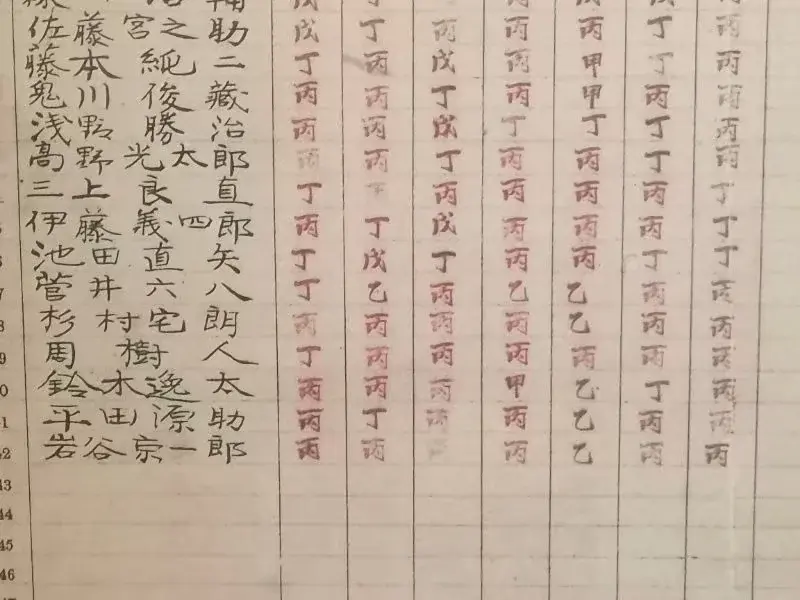 佐藤宮之助 戊 丁 丙 丙 丙 丁 丙
藤本純二 丁 丙 戊 丙 甲 丁 丙
鬼川俊藏 丙 丙 丁 丙 甲 丙 丙
浅野勝治 丙 丙 戊 丁 丁 丁 丙
高野光太郎 丙 丙 丁 丙 丙 丁 丙
三上良直 丁 丙 丙 丙 丙 丁
伊藤義四郎 丙 丁 戊 丙 丙 丙 丁
池田直矢 丁 戊 丁 丙 丙 丁 丁
7 菅井六八 丁 乙 丙 乙 乙 丙 丙
8 杉村宅朗 丙 丙 丙 丙 乙 丙 丙
9 周樹人 丁 丙 丙 丙 丙 丙 丙
0 鈴木逸太 丙 丙 丙 甲 乙 丁 丙
1 平田源助 丙 丁 丙 丙 乙 丙 丙
42 岩谷京一郎 丙 丙 丙 乙 丙 丙
43
44
45
46